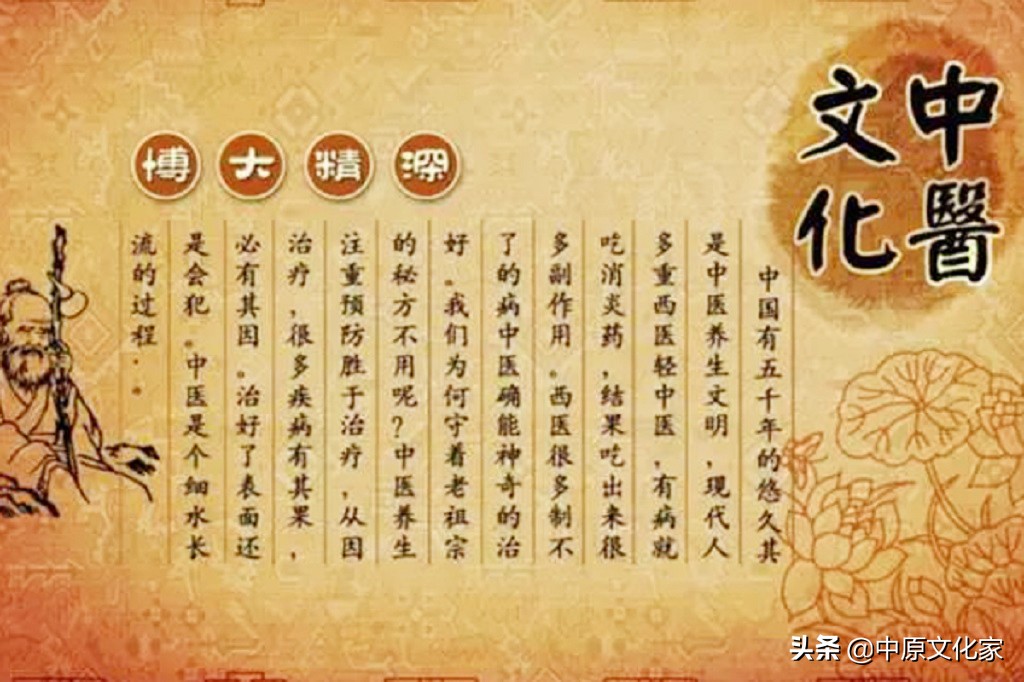 中醫
文化
博大精深
中国有五千年的悠久其
是中医养生文明，现代人
多重西医轻中医，有病就
吃消炎药，结果吃出来很
多副作用。西医很多制不
了的病中医确能神奇的治
好。我们为何守着老祖宗
的秘方不用呢？中医养生
注重预防胜于治疗，从因
治疗，很多疾病有其果，
必有其因。治好了表面还
是会犯。中医是个细水长
流的过程．。
头条 @中原文化家